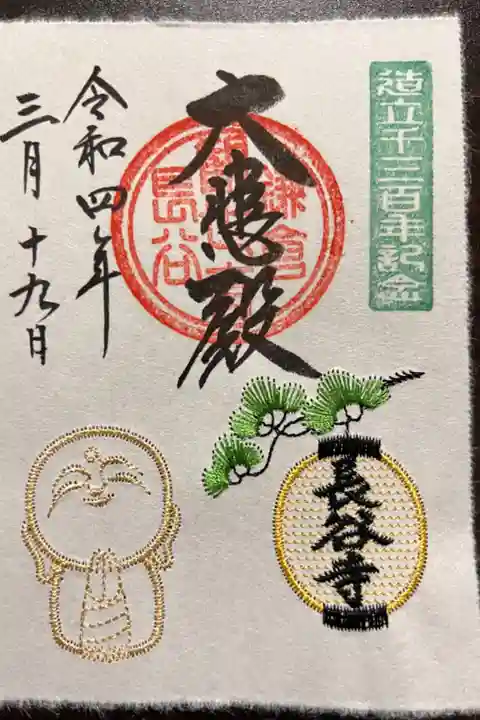 造立千三百年紀念
大悲殿
鎌倉
長谷
令和四年
三月十九日
長谷寺